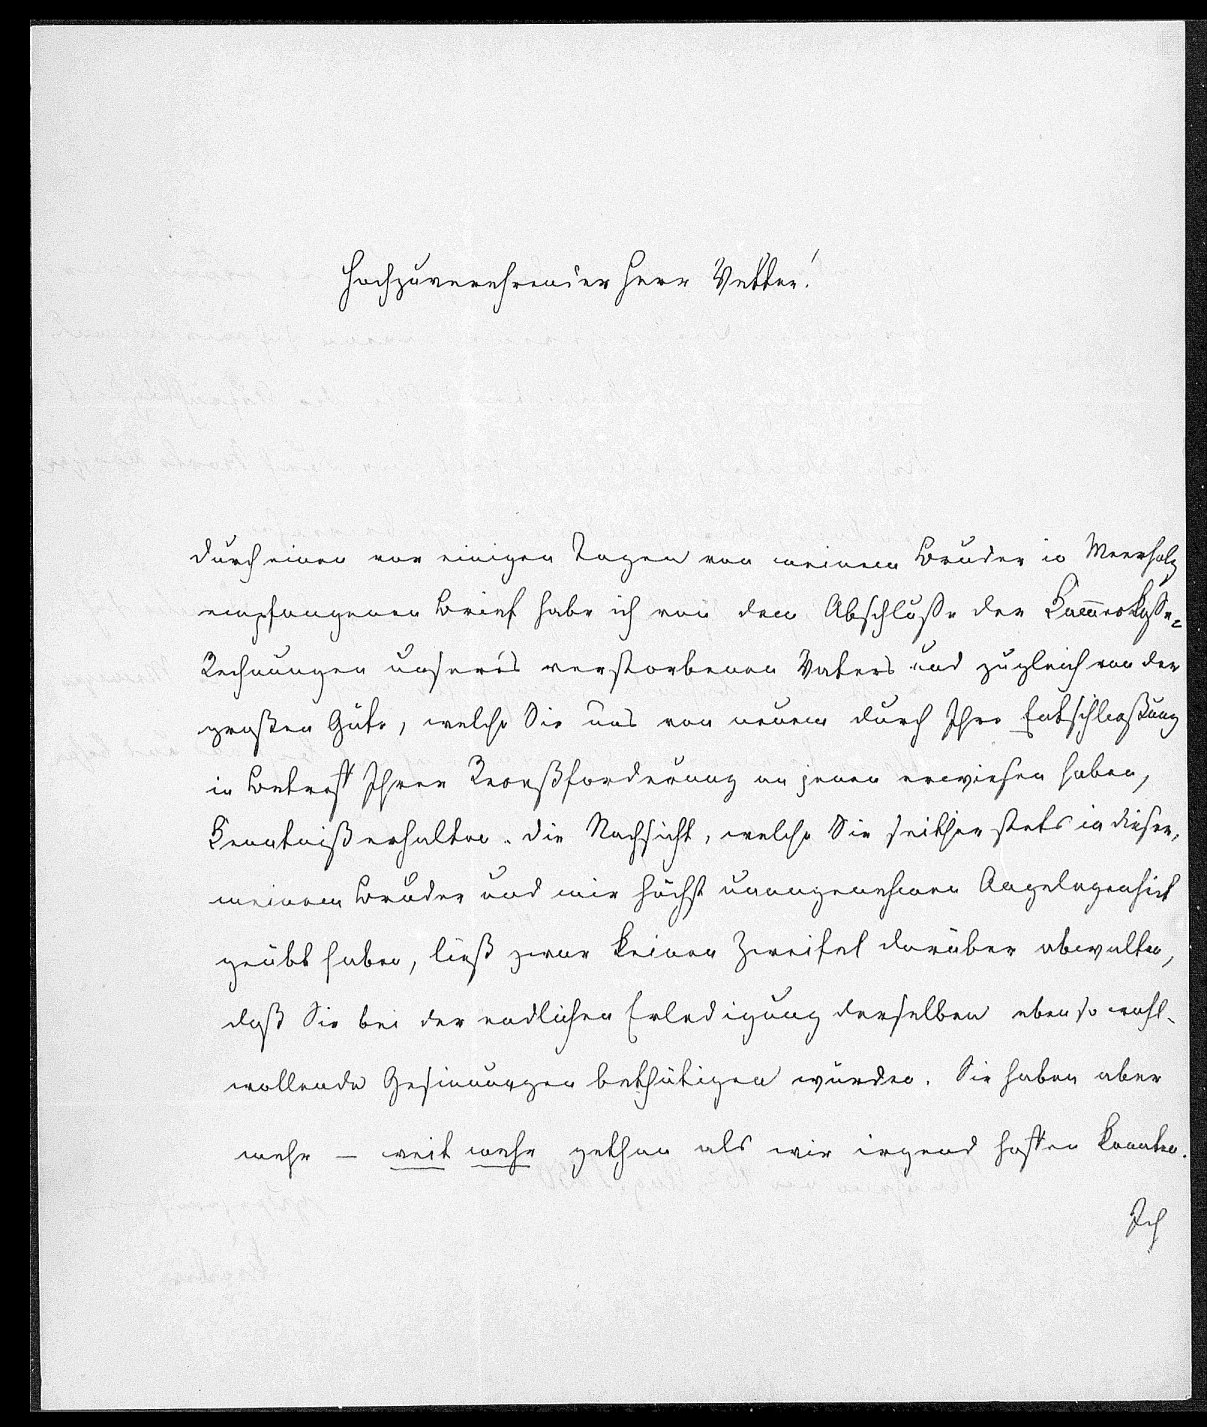 Hochzuverehrender Herr Vetter!
Durch einen vor einigen Tagen von meinem Bruder in Meerholz
empfangenen Brief habe ich von dem Abschlusse der Kammerkasse-
Rechnungen unseres verstorbenen Vaters und zugleich von der
großen Güte, welche Sie uns von neuem durch Ihre Entschließung
in Betreff Ihrer Receßforderung an jenen erwiesen haben,
Kenntniß erhalten. Die Nachsicht, welche Sie seither stets in dieser,
meinem Bruder und mir höchst unangenehmen Angelegenheit
geübt haben, ließ zwar keinen Zweifel darüber obwalten,
daß Sie bei der endlichen Erledigung derselben ebenso wohl-
wollende Gesinnungen bethätigen würden. Sie haben aber
mehr – weit mehr gethan als wir irgend hoffen konnten.
Ich